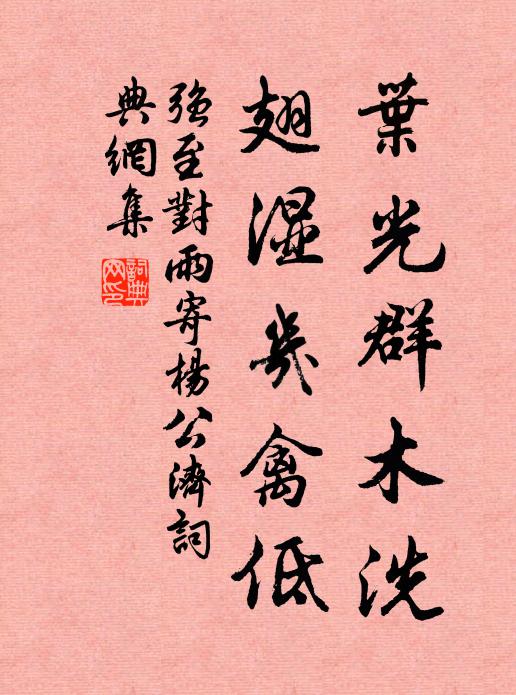 葉光群木洗
翅濕幾禽低
強至對雨寄楊公濟詞
典網集
詞典網印